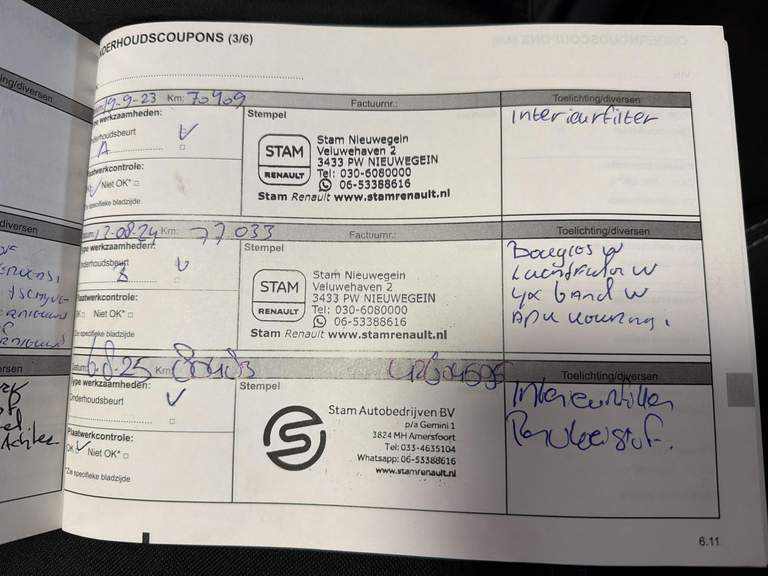 DERHOUDSCOUPONS (3/6)
ing/diversen
19-9-23 Km: 70409 Factuurnr.: Toelichting/diversen
werkzaamheden: Stempel Interieurfilter
derhoudsbeurt V
A
STAM RENAULT
Stam Nieuwegein
Veluwehaven 2
3433 PW NIEUWEGEIN
Tel: 030-6080000
06-53388616
Stam Renault www.stamrenault.nl
aatwerkcontrole:
Niet OK*
specifieke bladzijde
diversen
12-08-24 Km: 77.033 Factuurnr.: Toelichting/diversen
Type werkzaamheden: Stempel
nderhoudsbeurt V
STAM RENAULT
Stam Nieuwegein
Veluwehaven 2
3433 PW NIEUWEGEIN
Tel: 030-6080000
06-53388616
Stam Renault www.stamrenault.nl
Bougies W
Luchtfilter W
4x band W
APK keuring.
Plaatwerkcontrole:
Niet OK*
De specifieke bladzijde
ersen
6-8-25 Km: Toelichting/diversen
Type werkzaamheden: Stempel
Onderhoudsbeurt V
Stam Autobedrijven BV
p/a Gemini 1
3824 MH Amersfoort
Tel: 033-4635104
Whatsapp: 06-53388616
www.stamrenault.nl
Interieurfilter
Plaatwerkcontrole:
OK Niet OK*
*Zie specifieke bladzijde
6.11